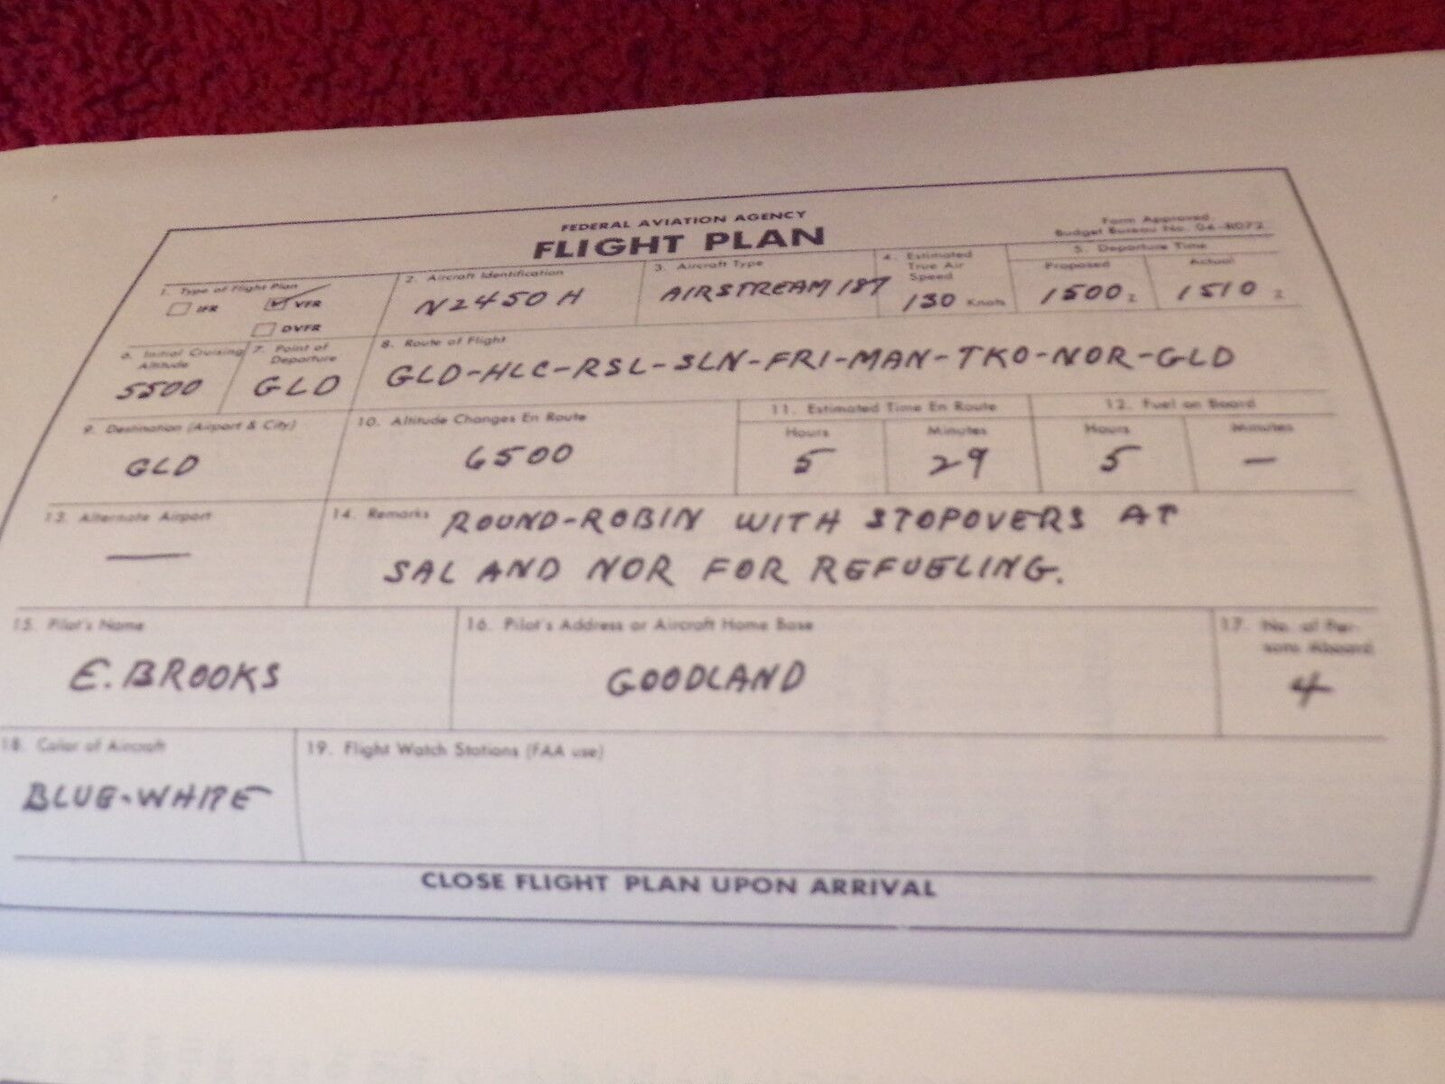 FEDERAL AVIATION AGENCY
FLIGHT PLAN
Form Approved.
Budget Bureau No. 04-R072.
1. Type of Flight Plan
IFR
VFR
DVFR
2. Aircraft Identification
N2450H
3. Aircraft Type
AIRSTREAM 187
4. Estimated
True Air
Speed
130 Knots
5. Departure Time
Proposed
1500 Z
Actual
1510 Z
6. Initial Cruising
Altitude
5500
7. Point of
Departure
GLD
8. Route of Flight
GLD-HLC-RSL-SLN-FRI-MAN-TKO-NOR-GLD
9. Destination (Airport & City)
GLD
10. Altitude Changes En Route
6500
11. Estimated Time En Route
Hours
5
Minutes
29
12. Fuel on Board
Hours
5
Minutes
—
13. Alternate Airport
—
14. Remarks ROUND-ROBIN WITH STOPOVERS AT
SAL AND NOR FOR REFUELING.
15. Pilot's Name
E. BROOKS
16. Pilot's Address or Aircraft Home Base
GOODLAND
17. No. of Per-
sons Aboard
4
18. Color of Aircraft
BLUE-WHITE
19. Flight Watch Stations (FAA use)
CLOSE FLIGHT PLAN UPON ARRIVAL